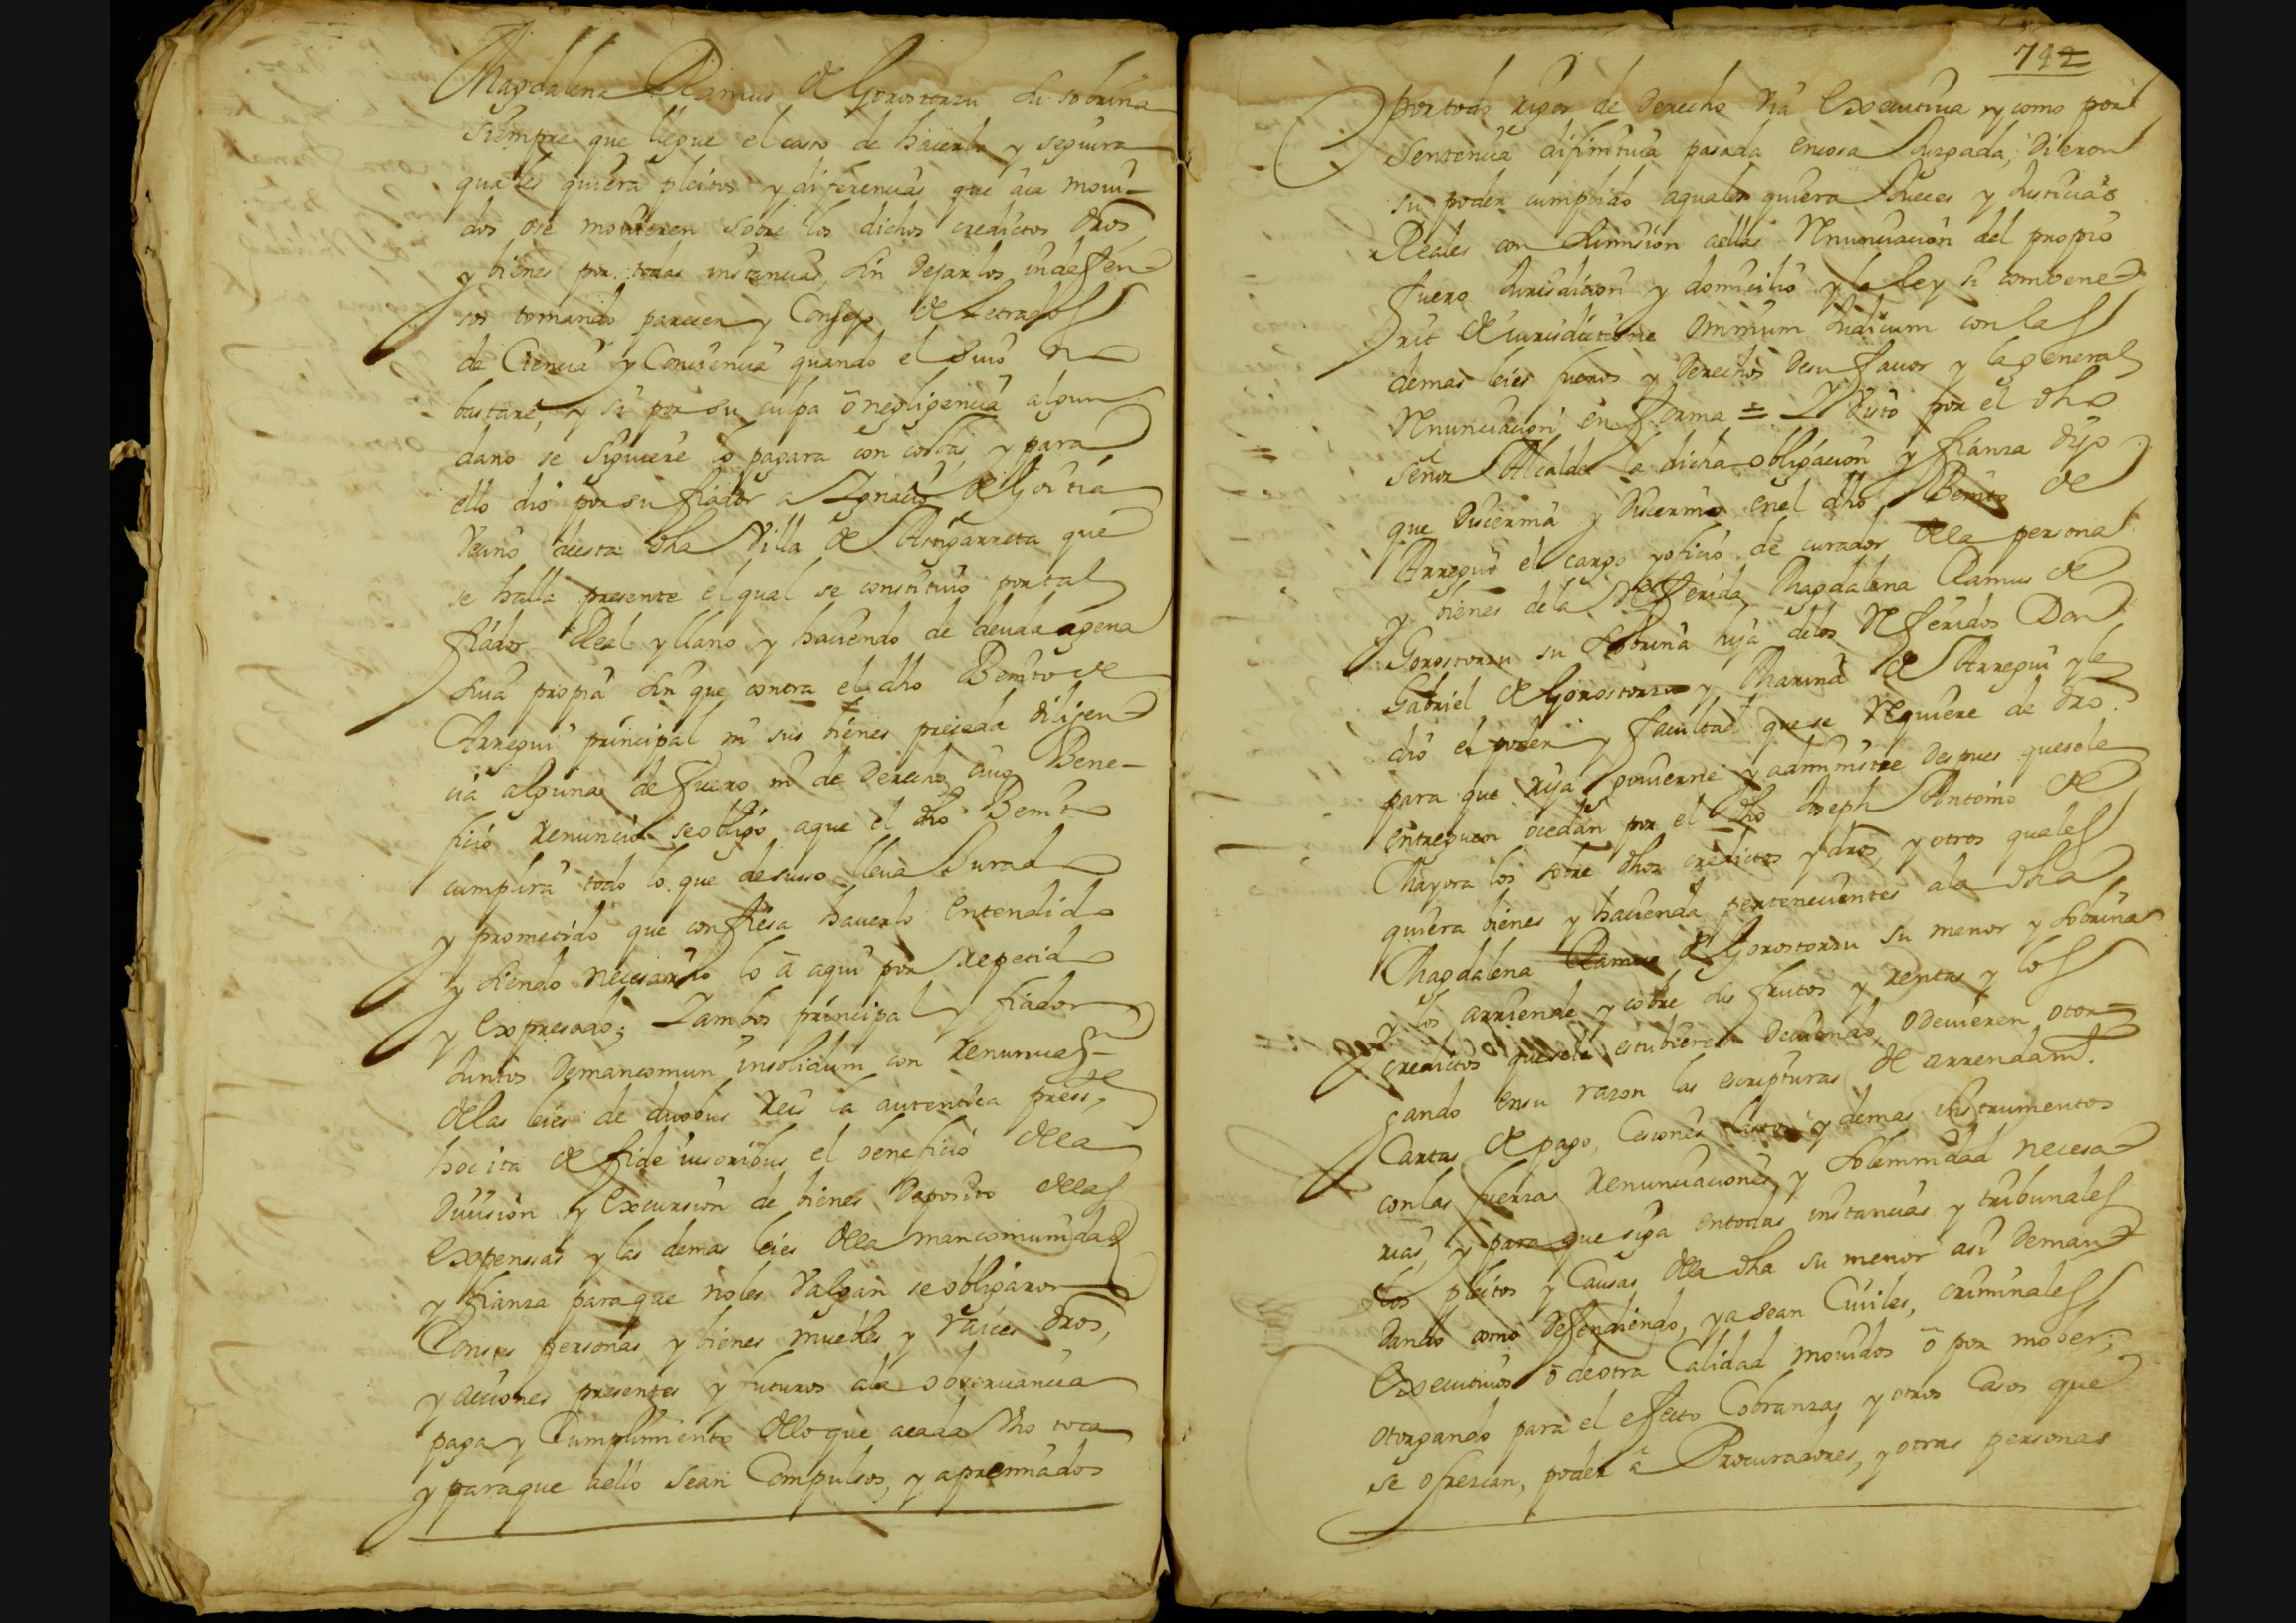 Magdalena Ramus de Gorostorzu su sobrina
siempre que llegue el caso de hacerlo y seguira
quales quiera pleitos y diferencias que aia moui-
dos ose mouieren sobre los dichos creditos dros,
y bienes por todas instancias, sin dejarlos indefen
sos tomando parecer y Consejo de Letrados
de Ciencia y Conciencia quando el suio no
bastare, y si por su culpa ō negligencia algun
daño se siguiere lo pagara con costas, y para
ello dio por su fiador a Ignacio de Goitia
Vecino de esta dha Villa de Astigarreta que
se halla presente el qual se constituio por tal
fiador Real y llano y haciendo de deuda agena
suia propia sin que contra el dho Benito de
Arregui principal ni sus bienes preceda dilijen
cia alguna de fuero ni de derecho cuio Bene-
ficio renunció se obligó aque el dho Benito
cumplira todo lo que desusso lleua Jurado
y prometido que confiesa hauerlo entendido
y siendo necesario lo ā aqui por repetido
y expresado; Iambos principal y fiador
Juntos demancomun insolidum con renunciaz.on
de las leies de duobus reis la autentica press.te
hocita de fide iusoribus el beneficio de la
Diuision y excursion de bienes Deposito de las
expenssas y las demas leies de la mancomunidad
y fianza paraque no les Valgan se obligaron
Consus personas y bienes muebles y raices dros,
y acciones presentes y futuros ala obseruancia
paga y Cumplimiento de lo que acada Vno toca
y paraque aello sean Compulsos, y apremiados
742
portodo rigor de derecho via executiua y como por
sentencia difinitiua pasada encosa Juzgada, dieron
su poder cumplido aquales quiera Jueces y Justicias
Reales con sumision aellas Renunciacion del propio
fuero Jurisdicion y domicilio y la ley si combene
rit de iurisdictione omnium Judicum con las
demas leies fueros y derechos desu fauor y la general
Renunciacion en forma = I Visto por el dho
señor Alcalde la dicha obligacion y fianza dijo
que discernia y discernio enel dho Benito de
Arregui el cargo y oficio de curador de la persona
y bienes de la referida Magdalena Ramus de
Gorostorzu su sobrina hija de los Referidos Don
Gabriel de Gorostorzu y Marina de Arregui y le
dio el poder y facultad que se Requiere de dro
para que rija gouierne y administre despues quesele
entreguen ocedan por el dho Joseph Antonio de
Mayora los sobre dhos creditos y dros, y otros quales
quiera bienes y hacienda pertenecientes ala dha
Magdalena Ramus de Gorostorzu su menor y sobrina
y los arriende y cobre sus frutos y rentas y los
creditos quesele estubieren deuiendo, odeuieren otor=
gando ensu razon las escripturas de arrendam.to
Cartas de pago, Cesiones lastos y demas instrumentos
conlas fuerzas renunciaciones y solemnidad necesa
rias, y para que siga entodas instancias y tribunales
los pleitos y Causas de la dha su menor asi deman
dando como defendiendo, ya sean Ciuiles, criminales
executiuos ō deotra Calidad mouidos ō por mober;
otorgando para el efecto Cobranzas y otros Casos que
se ofrezcan, poder ā Procuradores, y otras personas